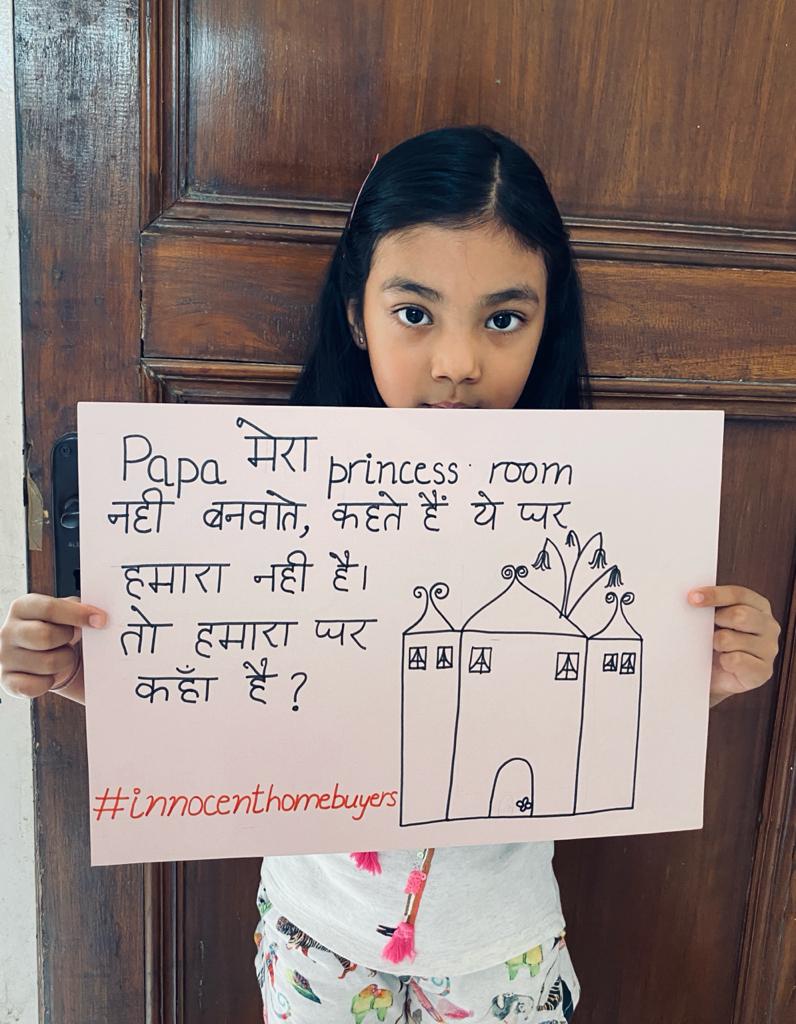 Papa मेरा princess room
नही बनवाते, कहते हैं ये घर
हमारा नही है।
तो हमारा घर
कहाँ है?
#innocenthomebuyers